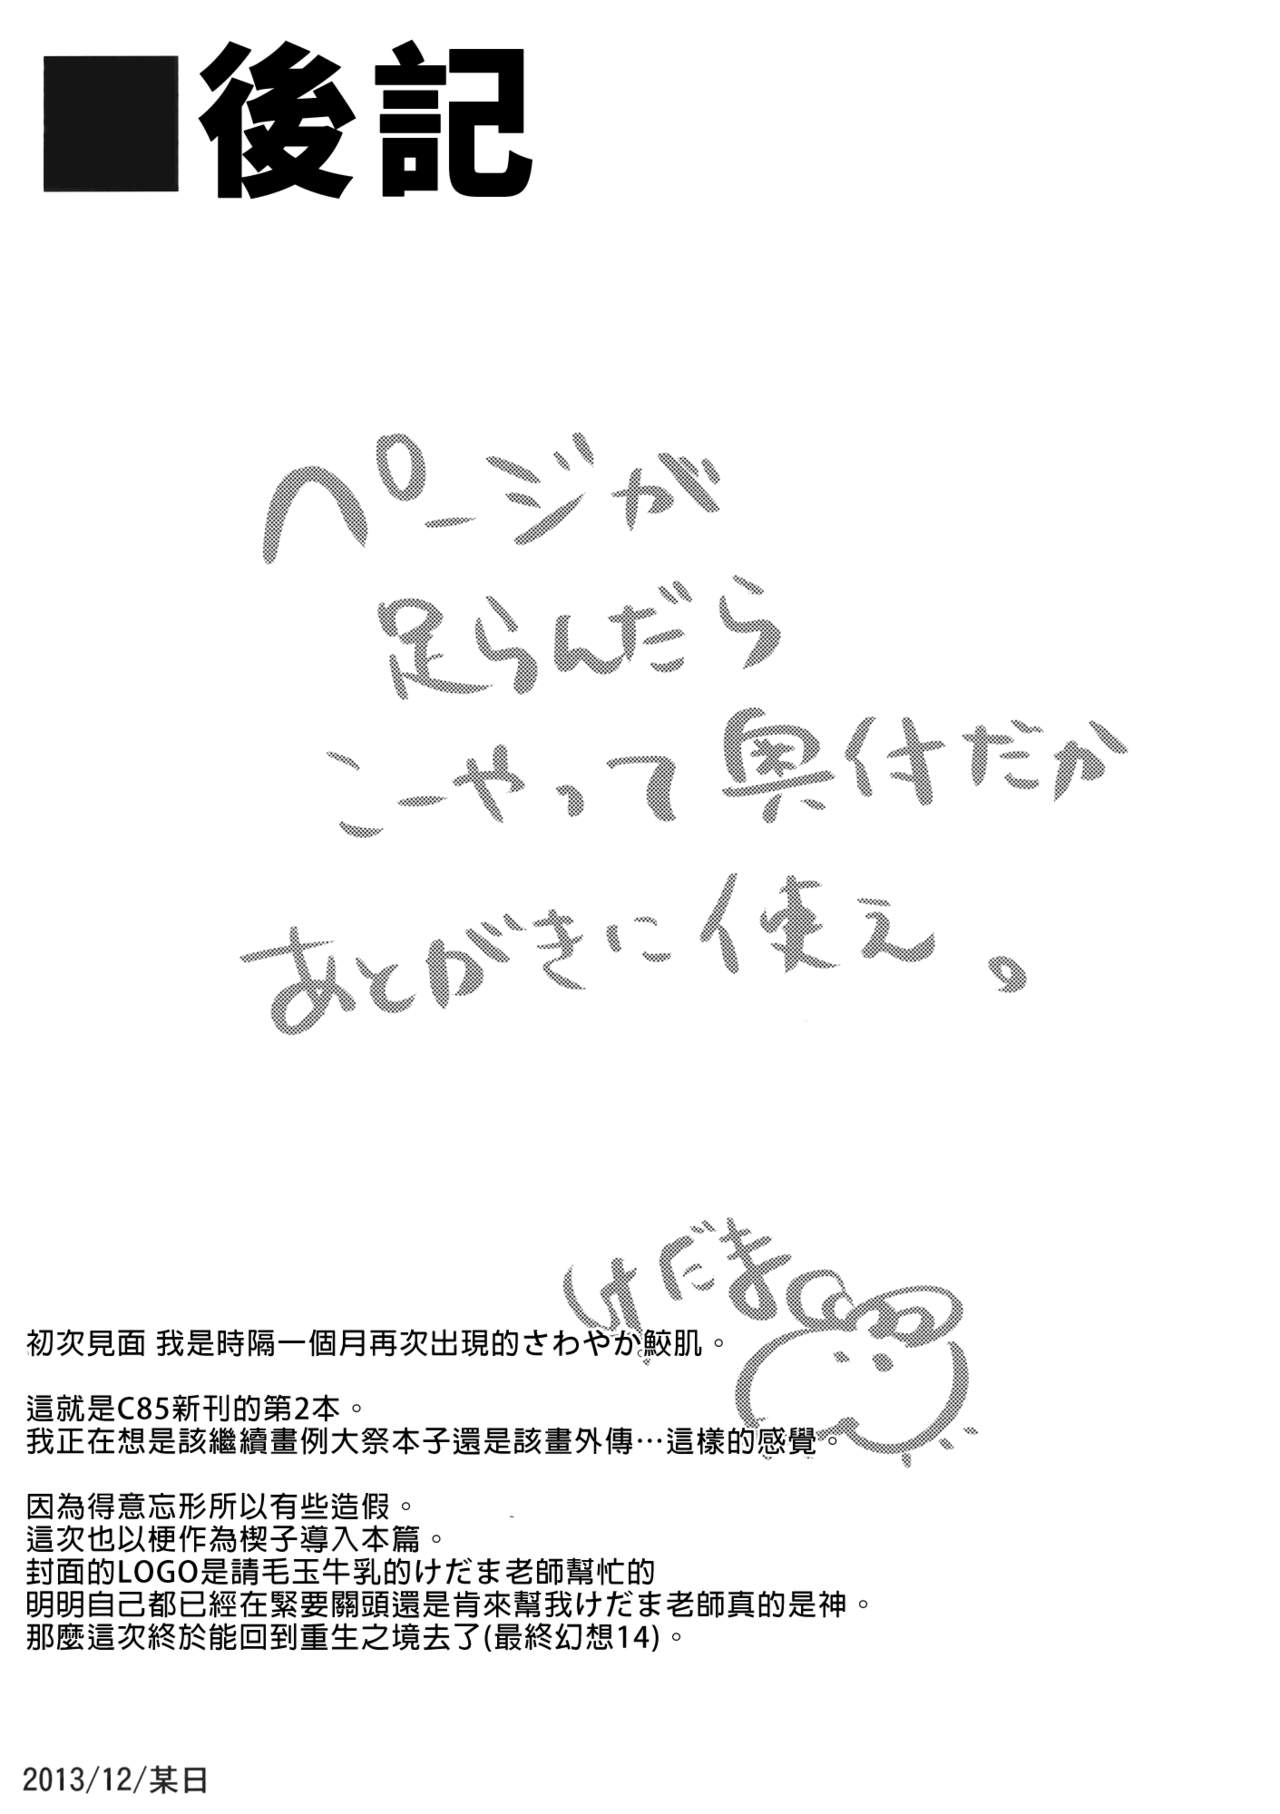 ■後記
ページが
足らんだら
こーやって奥付だか
あとがきに使え。
けだま
初次見面 我是時隔一個月再次出現的さわやか鮫肌。
這就是C85新刊的第2本。
我正在想是該繼續畫例大祭本子還是該畫外傳…這樣的感覺。
因為得意忘形所以有些造假。
這次也以梗作為楔子導入本篇。
封面的LOGO是請毛玉牛乳的けだま老師幫忙的
明明自己都已經在緊要關頭還是肯來幫我けだま老師真的是神。
那麼這次終於能回到重生之境去了(最終幻想14)。
2013/12/某日